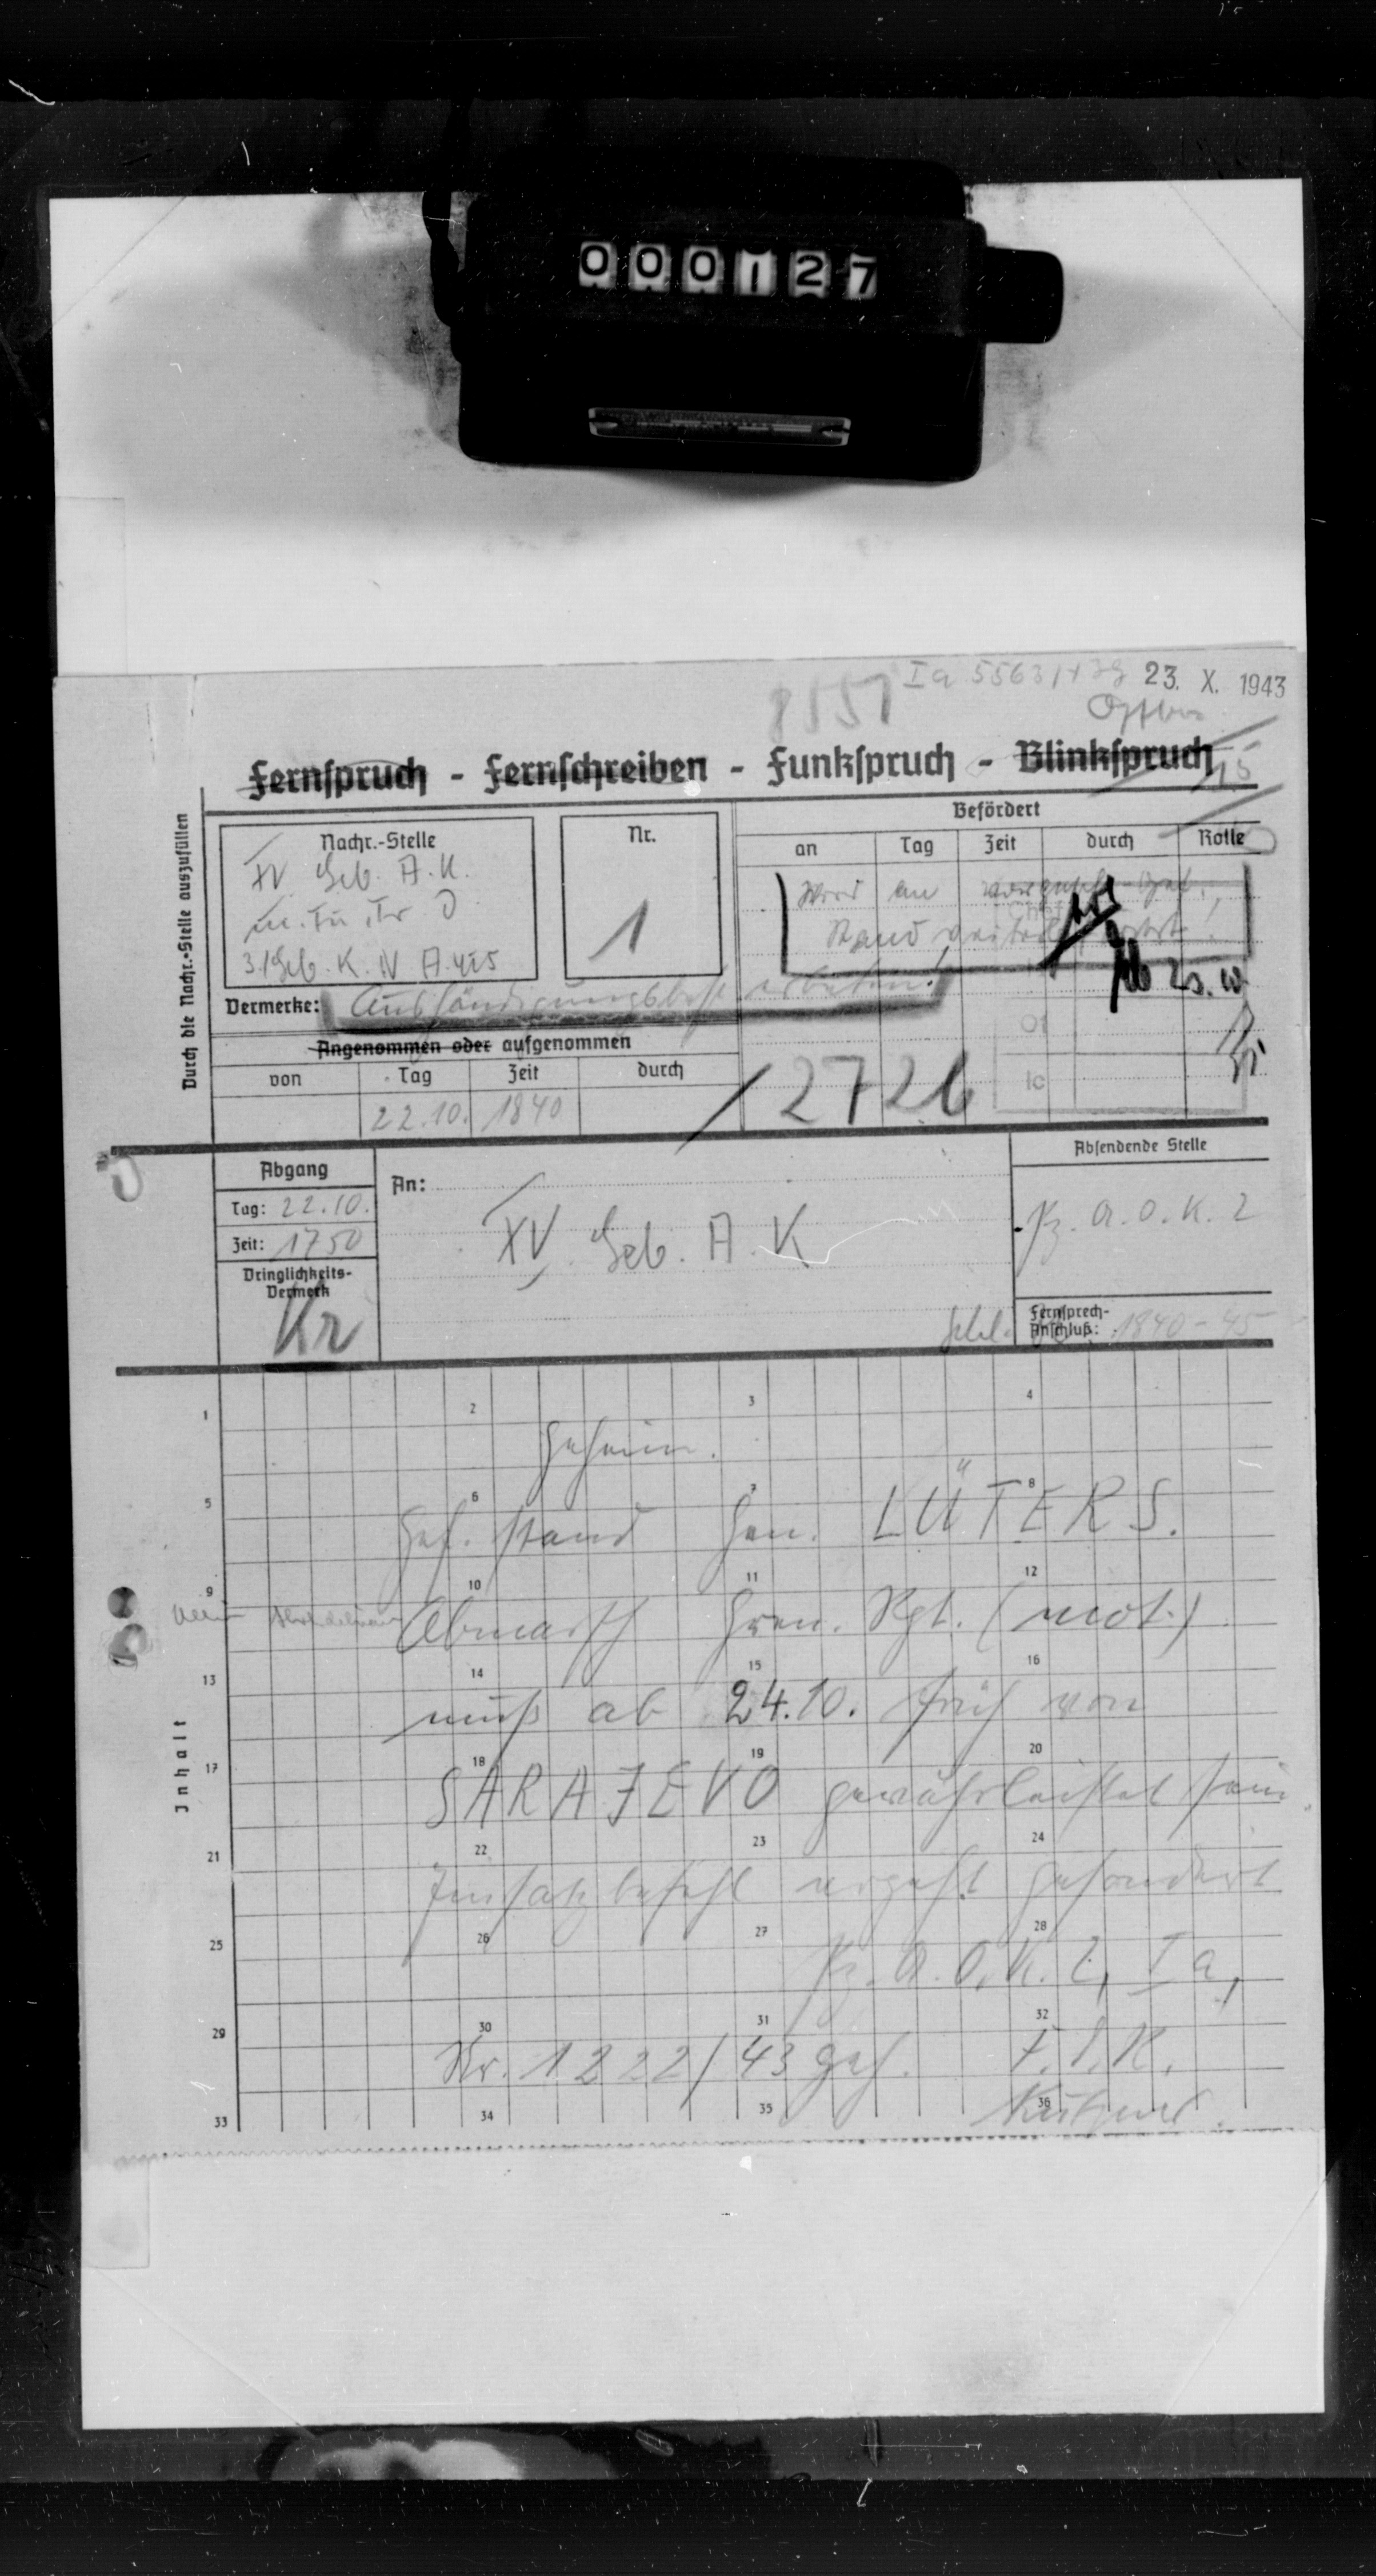 000127
8557 Ia 5563/43g 23. X. 1943
Fernspruch - Fernschreiben - Funkspruch - Blinkspruch
15
Durch die Nachr.-Stelle auszufüllen
Nachr.-Stelle
XV Geb. A.K.
3./Geb. K. N A. 425
Nr.
1
Befördert
an Tag Zeit durch Rolle
Wird an
Stand
Vermerke: erbeten!
Angenommen oder aufgenommen
von Tag Zeit durch
22.10. 1840
2726
Of
Ic
Abgang
Tag: 22.10.
Zeit: 1750
Dringlichkeits-
Vermerk
Kr
An:
XV. Geb. A.K
Absendende Stelle
Pz. A.O.K. 2
Fernsprech-
Anschluß: 1840-45
Inhalt
1 2 3 4
Geheim.
5 6 7 8
Gef. stand Gen. LÜTERS.
9 10 11 12
Abmarsch Gren. Rgt. (mot.)
13 14 15 16
muß ab 24.10. früh von
17 18 19 20
SARAJEVO gewährleistet sein
21 22 23 24
Einsatzbefehl ergeht gesondert
25 26 27 28
Pz. A.O.K. 2, Ia,
29 30 31 32
Nr. 1222/43 geh.
33 34 35 36